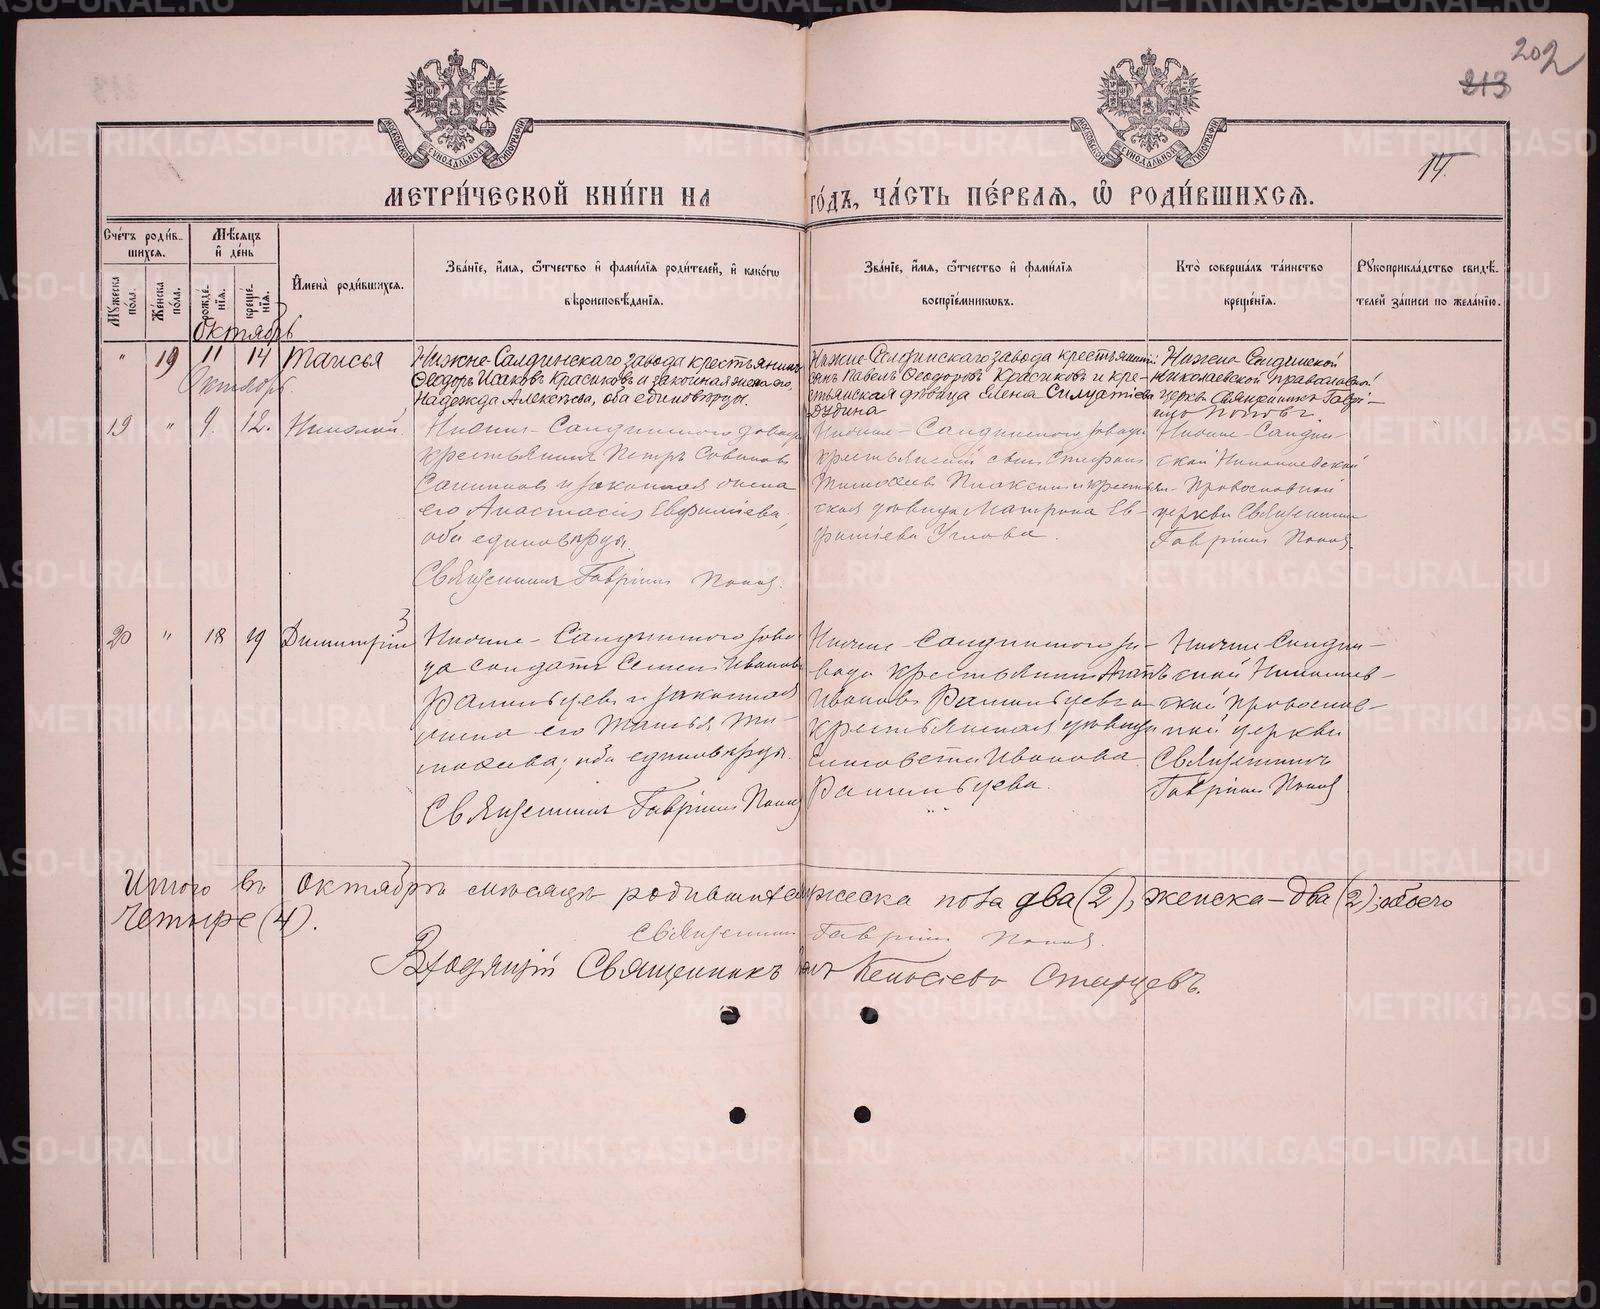 202
213
14
МЕТРИ́ЧЕСКОЙ КНИ́ГИ НА ГО́ДЪ, ЧА́СТЬ ПЕ́РВАѦ, Ѽ РОДИ́ВШИХСѦ.
Сче́тъ роди́в-
шихся.
Мѣ́сяцъ
и҆ де́нь
Мꙋ́жеска по́ла.
Же́нска по́ла.
рожде́-нїѧ.
креще́-нїѧ.
И҆мена̀ роди́вшихся.
Зва́нїе, и҆́мѧ, ѻ҆́тчество и҆ фами́лїѧ роди́телей, и҆ како́гѡ
вѣроисповѣ́данїѧ.
Зва́нїе, и҆́мѧ, ѻ҆́тчество и҆ фами́лїѧ
воспрїе́мникѡвъ.
Кто̀ соверша́лъ та́инство
креще́нїѧ.
Рꙋкоприкла́дство свидѣ́-
телей за́писи по жела́нїю.
Октябрь
" 19 11 14 Таисья
Нижне-Салдинскаго завода крестьянинъ
Ѳеодоръ Исаковъ Красиковъ и законная жена его,
Надежда Алексѣева, оба единовѣрцы.
Нижне-Салдинскаго завода крестьянскій
сынъ Павелъ Ѳеодоровъ Красиковъ и кре-
стьянская дѣвица Елена
Дудина
Нижне-Салдинской
Николаевской православной
церкви Священникъ Гаврі-
илъ Поповъ.
Октябрь.
19 " 9. 12. Николай
Нижне-Салдинскаго завода
крестьянинъ Петръ
и законная жена
его Анастасія Евфиміева,
оба единовѣрцы.
Священникъ Гавріилъ Поповъ.
Нижне-Салдинскаго завода
крестьянскій сынъ Стефанъ
и крестьян-
ская дѣвица Матрона Ев-
фиміева Углова.
Нижне-Салдин-
ской Николаевской
православной
церкви Священникъ
Гавріилъ Поповъ.
20 " 18 19 Димитрій
Нижне-Салдинскаго заво-
да солдатъ Семенъ Ивановъ
и законная
жена его Татьяна Ти-
моѳеева, оба единовѣрцы.
Священникъ Гавріилъ Поповъ
Нижне-Салдинскаго за-
вода крестьянинъ
Ивановъ и
крестьянская дѣвица
Елисавета Иванова
Нижне-Салдин-
ской Николаев-
ской православ-
ной церкви
Священникъ
Гавріилъ Поповъ
Итого въ Октябрѣ мѣсяцѣ родившихся мужеска пола два (2), женска - два (2); обоего
четыре (4).
Священникъ Гавріилъ Поповъ.
Священникъ Старцевъ.
METRIKI.GASO-URAL.RU